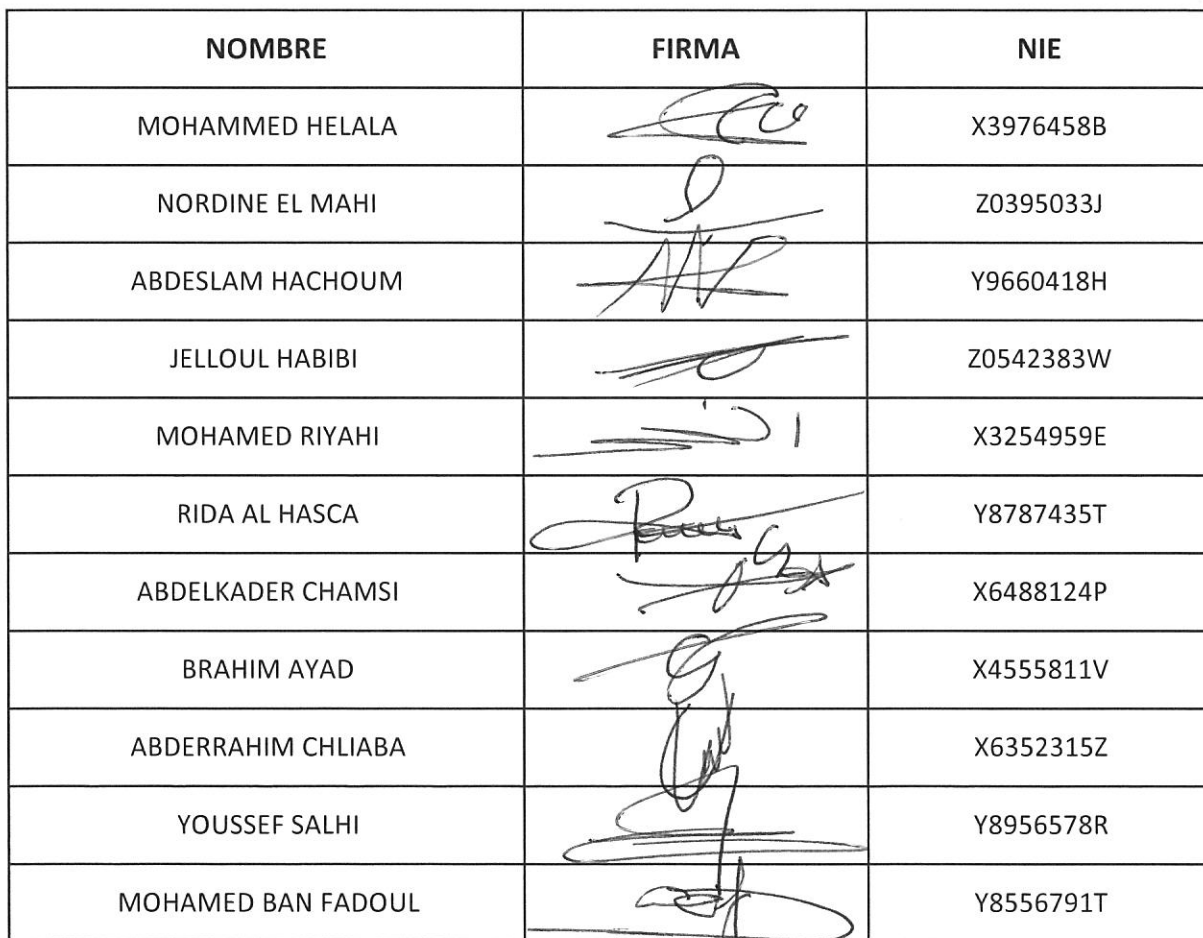 NOMBRE FIRMA NIE
MOHAMMED HELALA X3976458B
NORDINE EL MAHI Z0395033J
ABDESLAM HACHOUM Y9660418H
JELLOUL HABIBI Z0542383W
MOHAMED RIYAHI X3254959E
RIDA AL HASCA Y8787435T
ABDELKADER CHAMSI X6488124P
BRAHIM AYAD X4555811V
ABDERRAHIM CHLIABA X6352315Z
YOUSSEF SALHI Y8956578R
MOHAMED BAN FADOUL Y8556791T